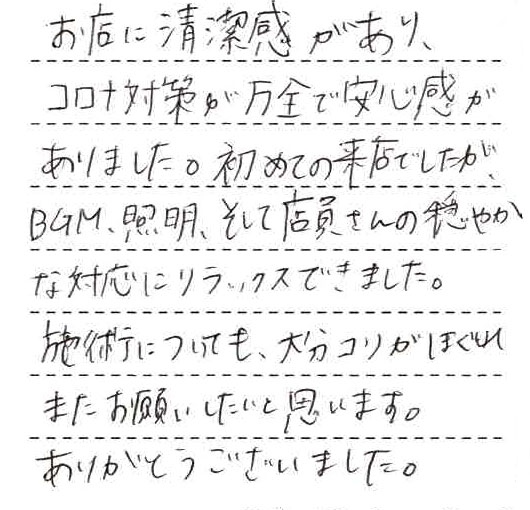 お店に清潔感があり、
コロナ対策が万全で安心感が
ありました。初めての来店でしたが、
BGM、照明、そして店員さんの穏やか
な対応にリラックスできました。
施術についても、大分コリがほぐれ
またお願いしたいと思います。
ありがとうございました。